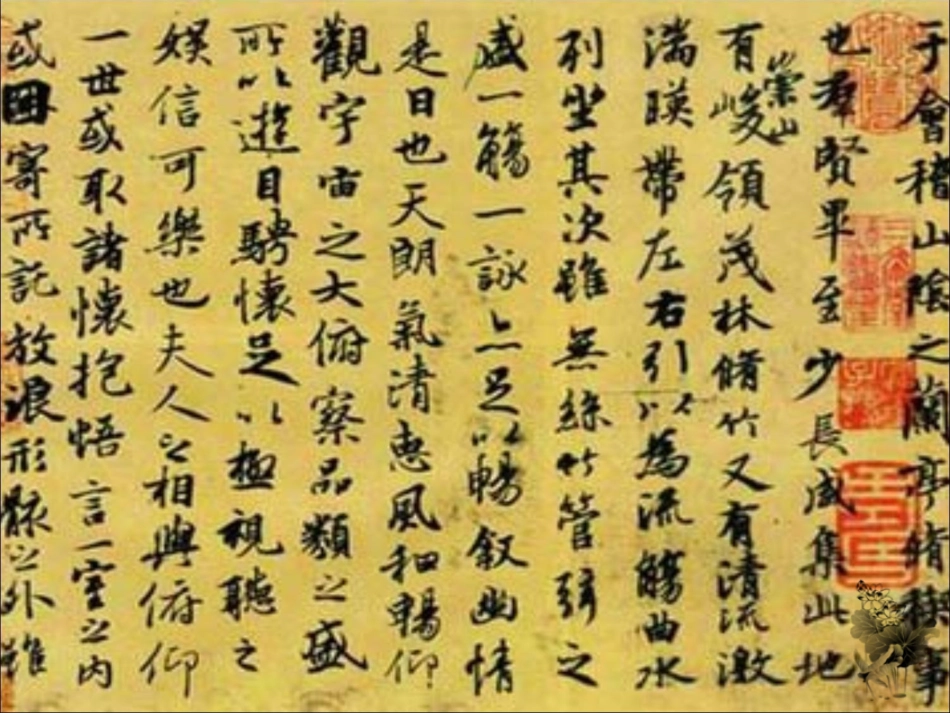 于會稽山陰之蘭亭脩禊事
也羣賢畢至少長咸集此地
有崇山峻領茂林脩竹又有清流激
湍暎帶左右引以為流觴曲水
列坐其次雖無絲竹管弦之
盛一觴一詠亦足以暢敘幽情
是日也天朗氣清惠風和暢仰
觀宇宙之大俯察品類之盛
所以遊目騁懷足以極視聽之
娛信可樂也夫人之相與俯仰
一世或取諸懷抱悟言一室之內
或因寄所託放浪形骸之外雖